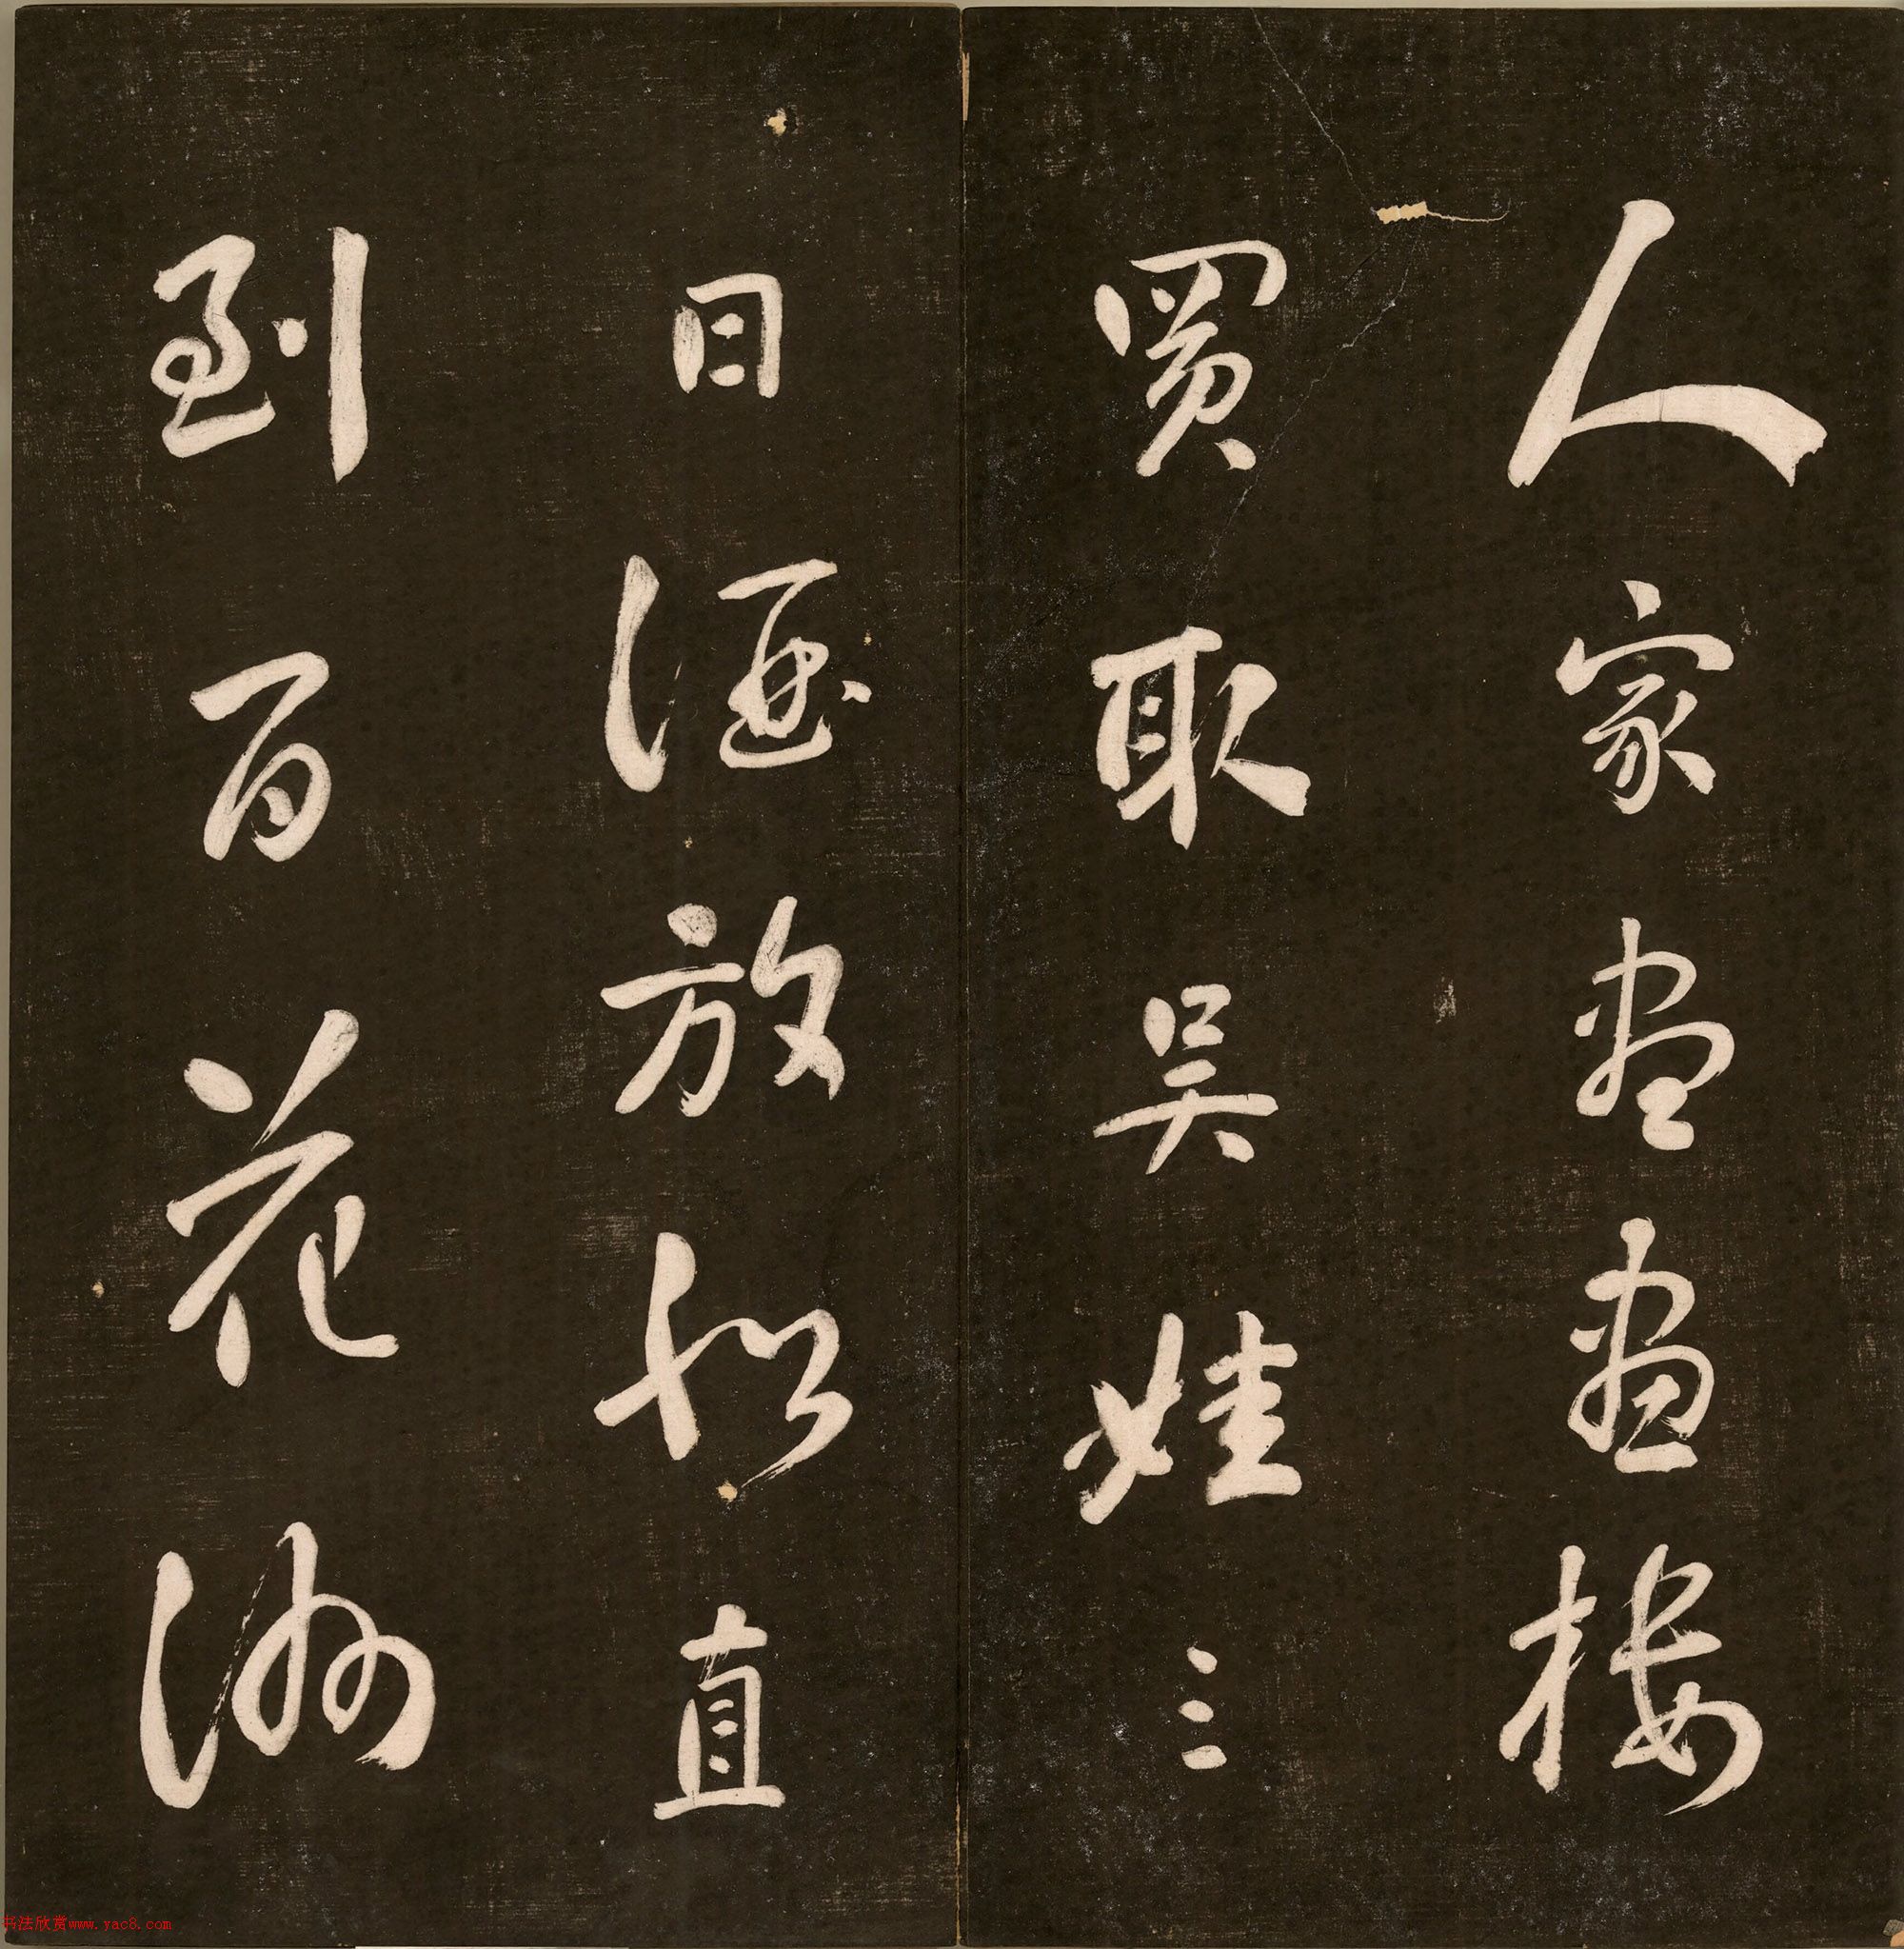 人家盡畫樓
買取吳娃三
日酒放船直
到百花洲
书法欣赏www.yac8.com